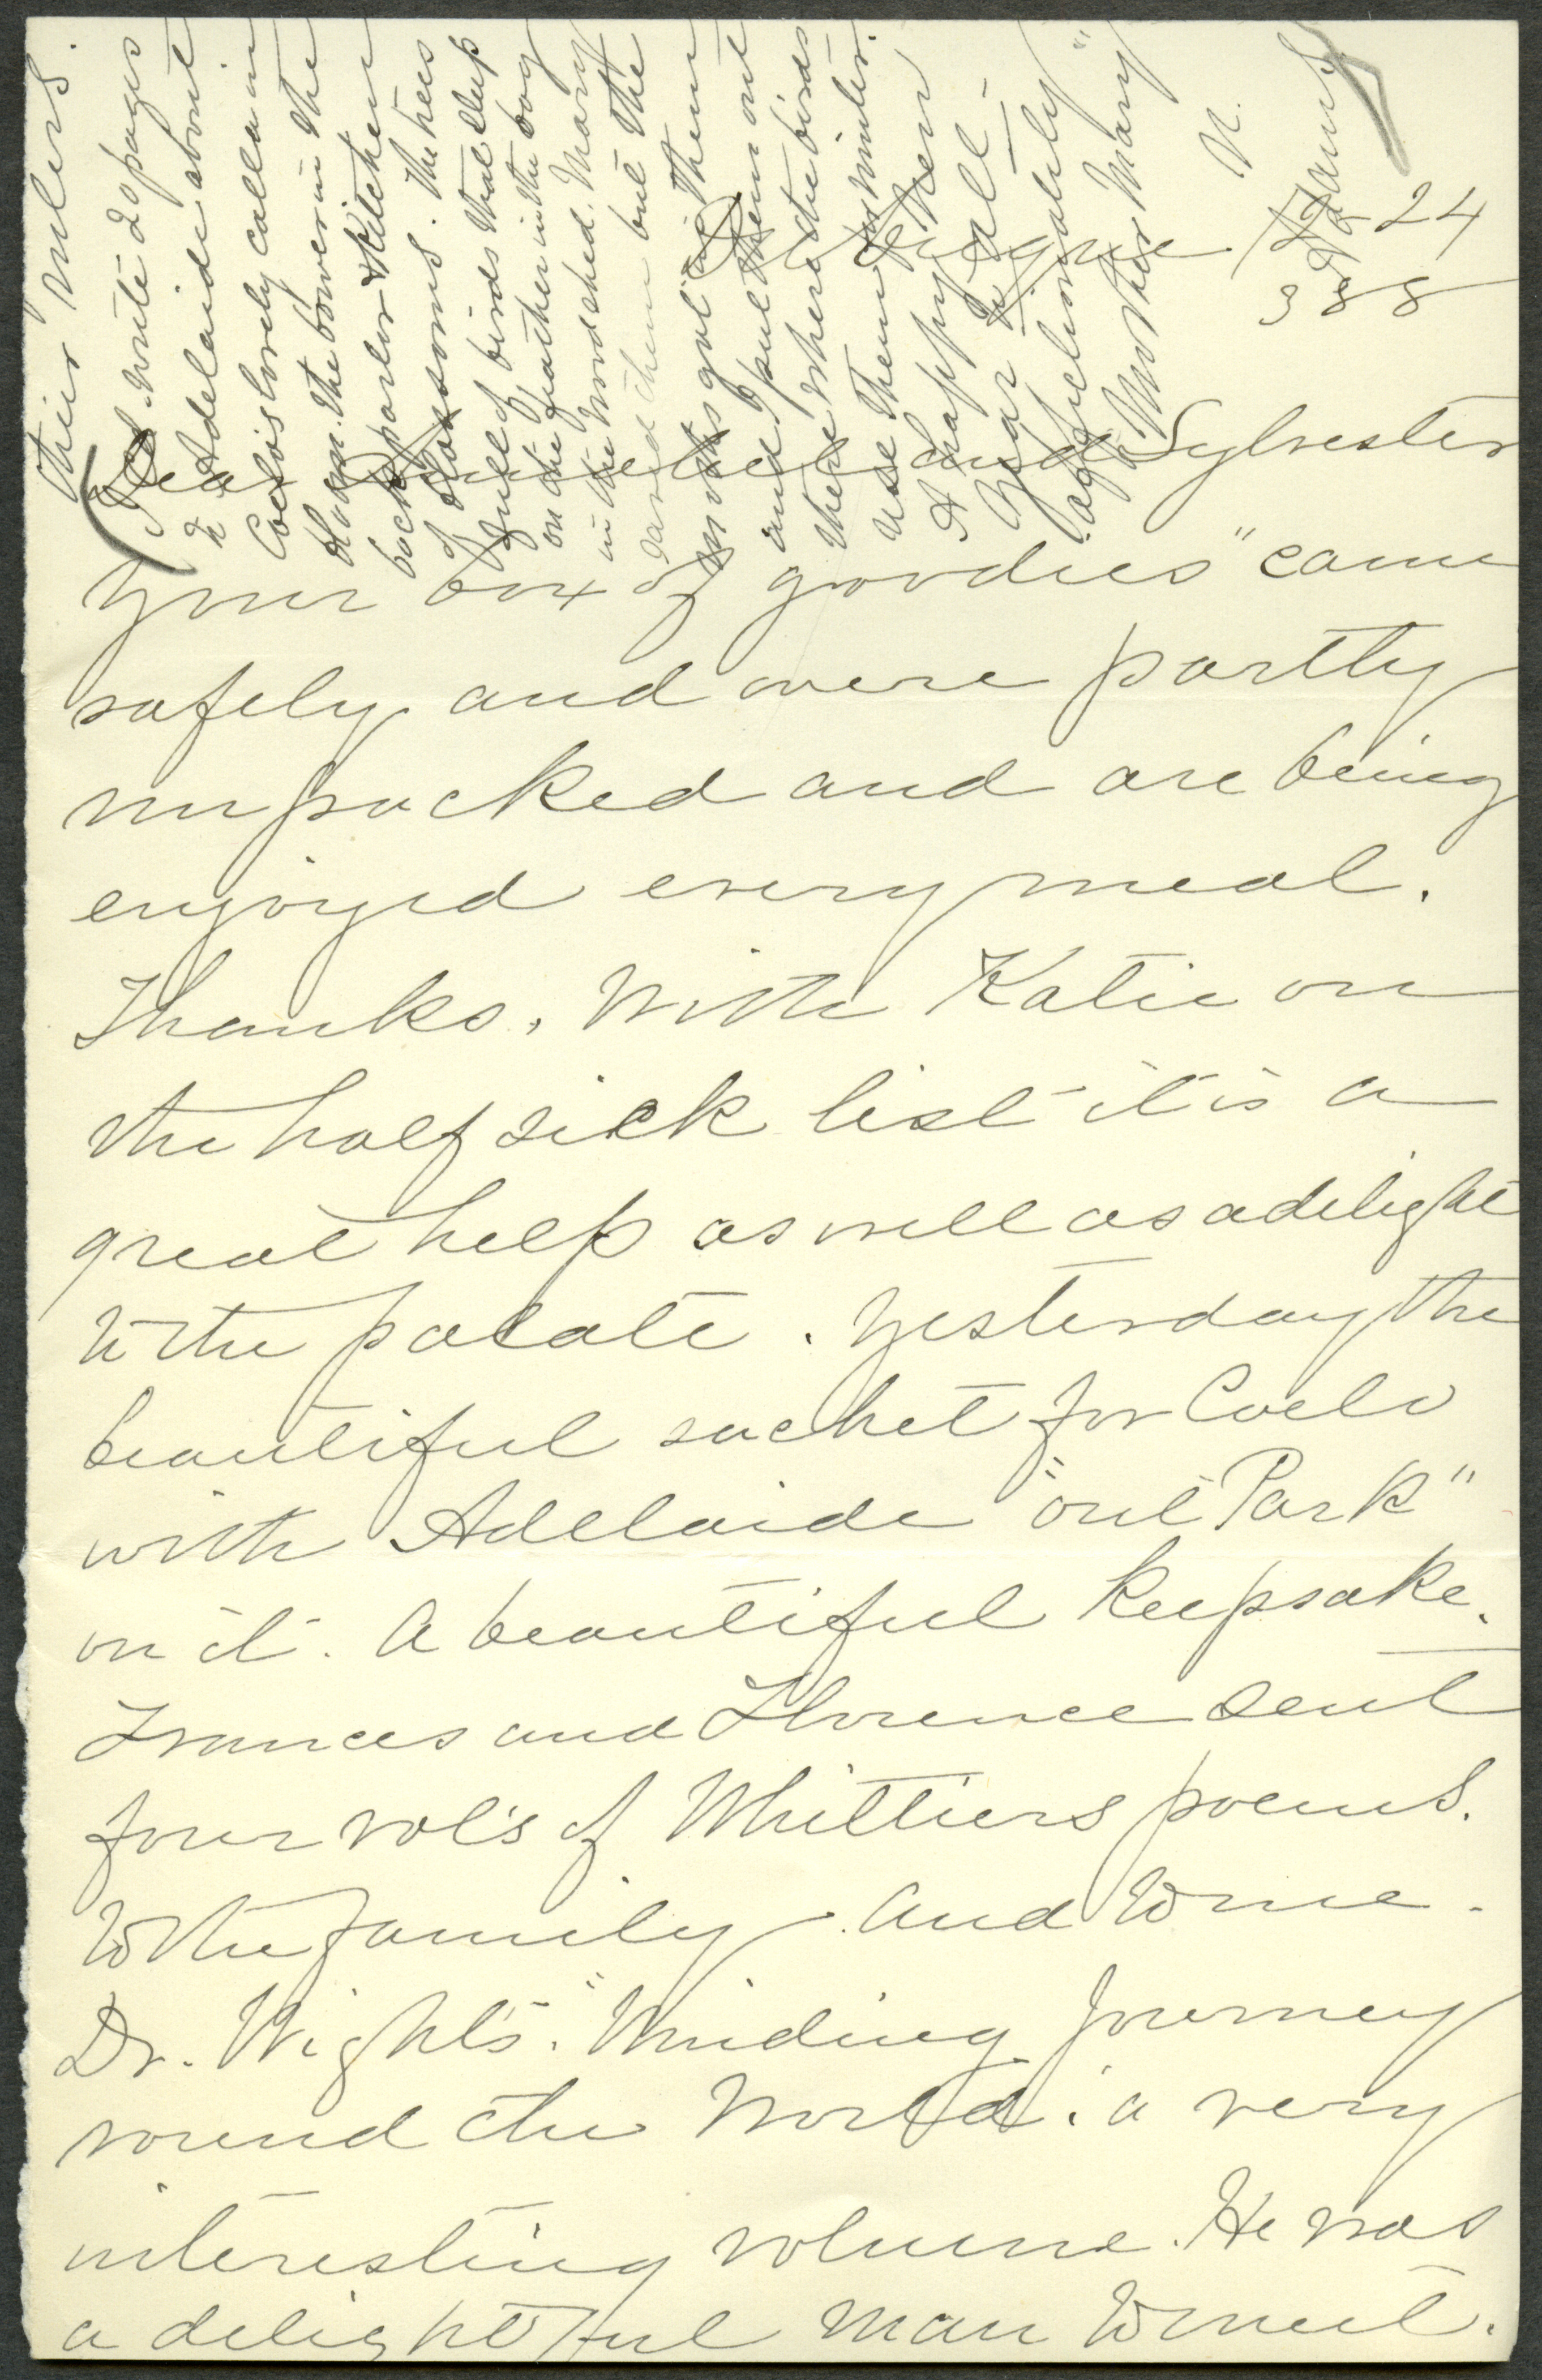 Dubuque 12-24
388
Dear Annabel and Sylvester
your box of goodies" came
safely and were partly
unpacked and are being
enjoyed every meal.
Thanks. With Katie on
the half sick list it is a
great help as well as a delight
to the palate. Yesterday the
beautiful sachet for Coelo
with Adelaide "out Park"
on it. A beautiful keepsake.
Frances and Florence sent
four vol's of Whittiers poems.
to the family. and to me.
Dr. Wight's. "Winding Journey
round the World. a very
interesting volume. He was
a delightful man to meet.
their rulers.
I'd write 20 pages
to Adelaide about
Coelo's lovely calla in
bloom. the bower in the
back parlor & Kitchen
of blossoms. The trees
full of birds that sleep
on the feather in the bag
in the woodshed. Mary
saved them but the
moths got in them
and I put them out
there where the birds
use them as winter.
A happy New
Year to all -
affectionately"
Mother Mary
N.